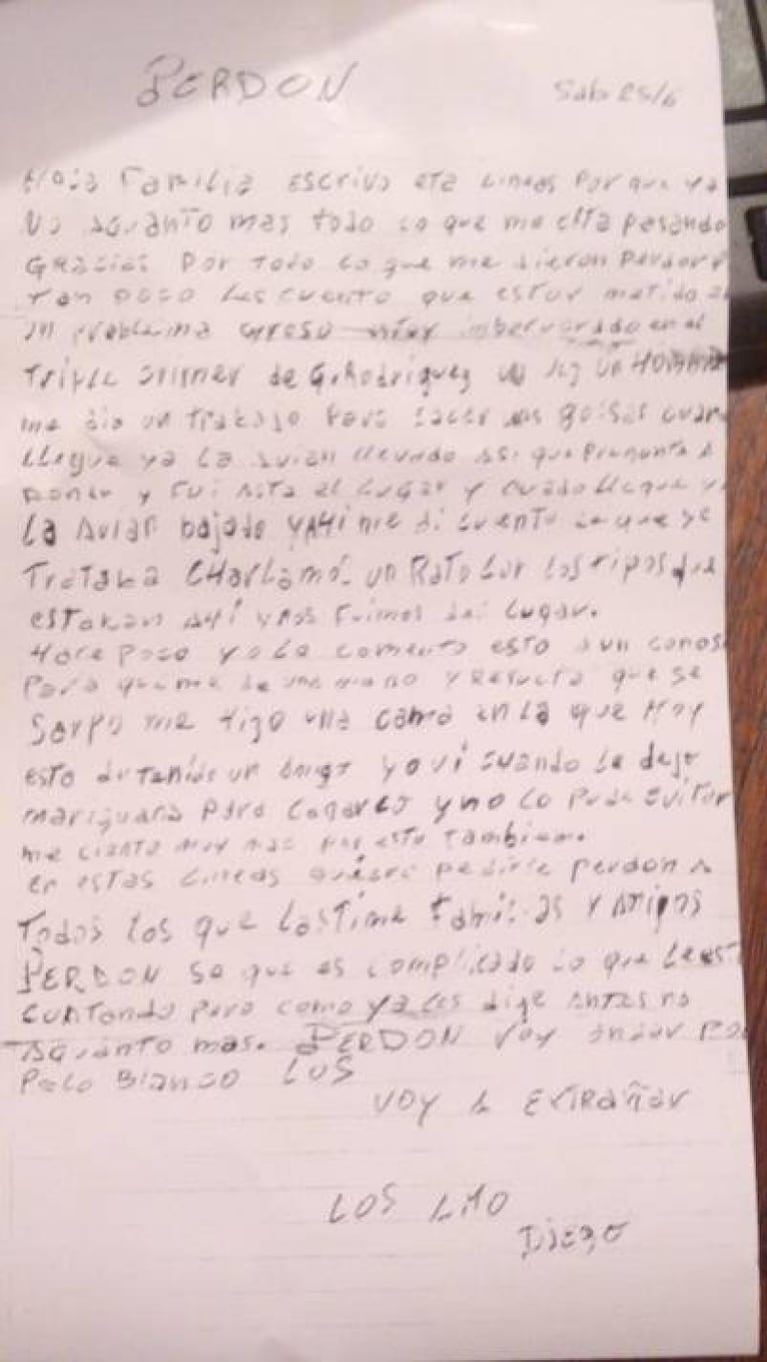 PERDON
Sab 25/6
Hola Familia escrivo eta lineas Por que ya
No aguanto mas todo lo que me esta pasando
Gracias Por todo lo que me dieron Perdon
tan poco les cuento que estoy metido
un problema groso estoy inberucrado en el
triple crimen de G. Rodriguez un
me dio un trabajo Para sacar unas goisas cuan
LLegue ya La avian llevado asi que Pregunta
donde y fui Asta el Lugar y cuado llegue
La Avian bajado y Ahi me di cuenta lo que se
Trataba CHarlamo un Rato con los tipos que
estaban AHi y nos fuimos del Lugar.
Hace poco yo le comento esto a un conos
Para que me de una mano y Resulta que se
Sarpo me hizo una cama en la que Hoy
esto detenido un amigo yo vi cuando le dejo
mariguana Para cagarlo y no lo Pude Evitar
me ciento muy mal Por esto tambien.
En estas Lineas quisiera pedirle perdon a
Todos los que Lastime familias y Amigos
PERDON se que es complicado lo que
contando Pero como ya les dige antes no
Aguanto mas. PERDON voy andar Por
Palo Blanco LOS
VOY A EXTRAñar
LOS AMO
Diego